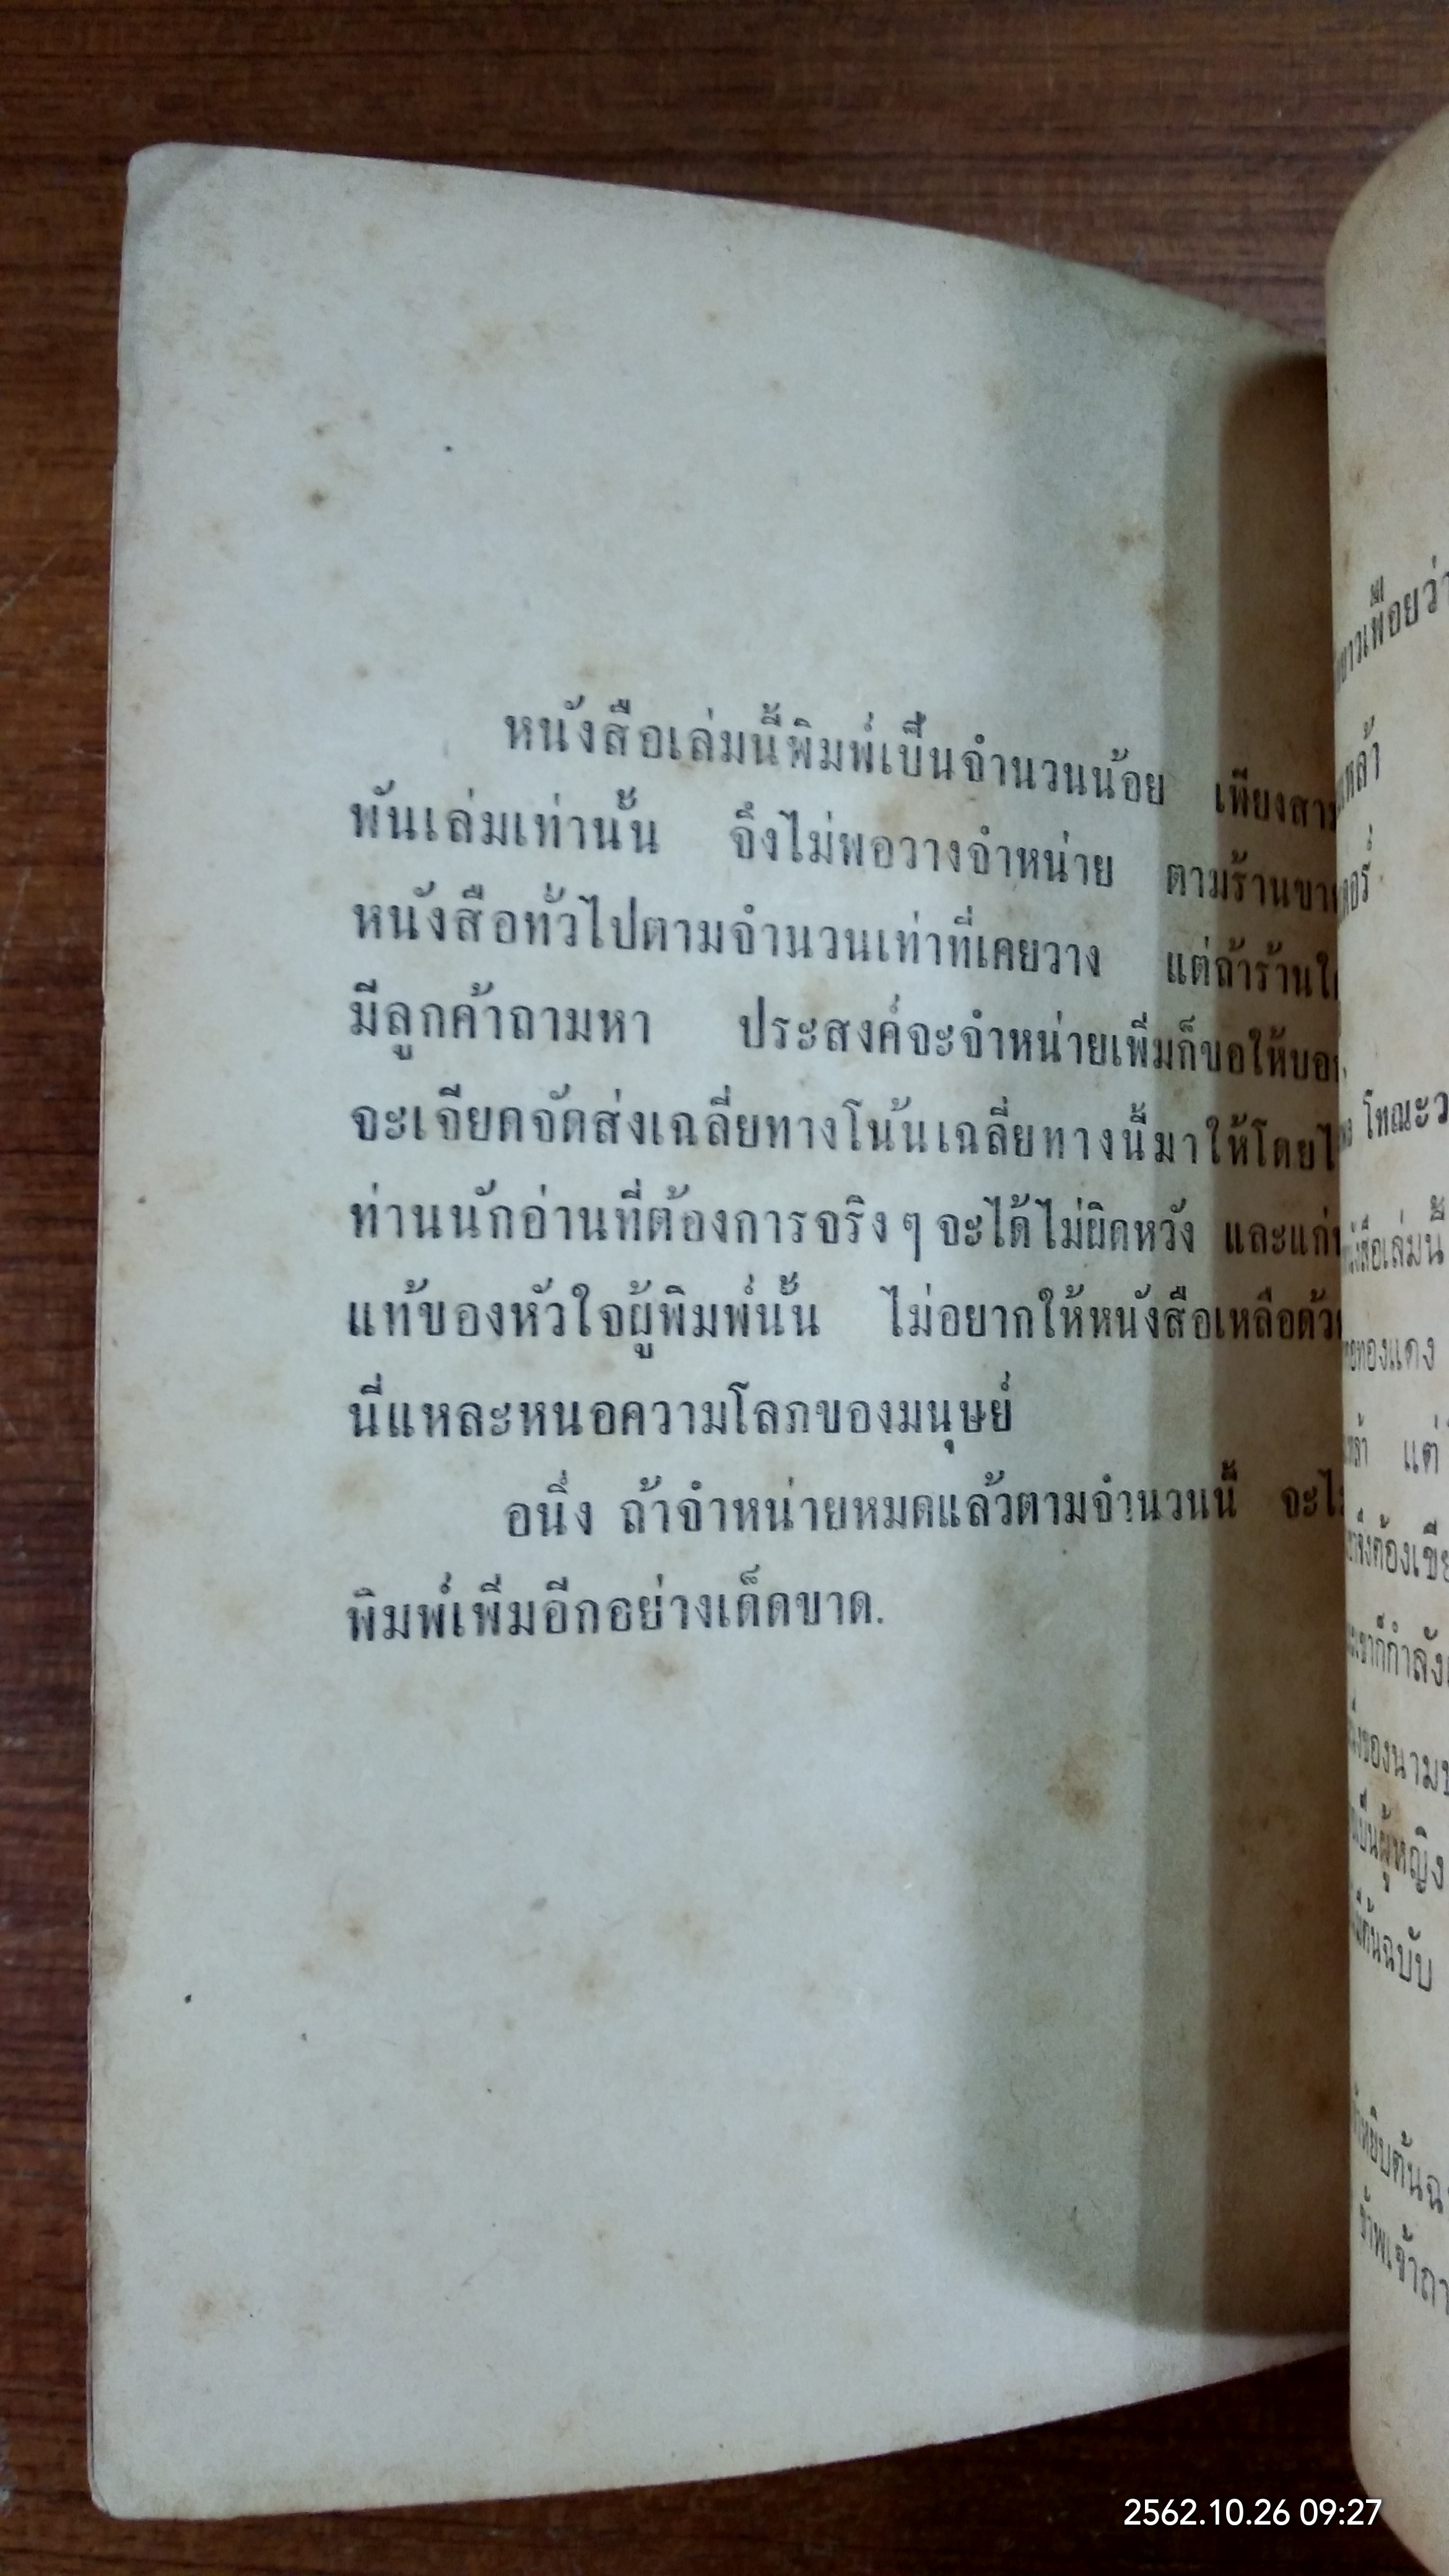 หนังสือเล่มนี้พิมพ์เป็นจำนวนน้อย เพียงสาม
พันเล่มเท่านั้น จึงไม่พอวางจำหน่าย ตามร้านขาย
หนังสือทั่วไปตามจำนวนเท่าที่เคยวาง แต่ถ้าร้านใด
มีลูกค้าถามหา ประสงค์จะจำหน่ายเพิ่มก็ขอให้บอก
จะเจียดจัดส่งเฉลี่ยทางโน้นเฉลี่ยทางนี้มาให้โดยไ
ท่านนักอ่านที่ต้องการจริงๆ จะได้ไม่ผิดหวัง และแก่น
แท้ของหัวใจผู้พิมพ์นั้น ไม่อยากให้หนังสือเหลือด้วย
นี่แหละหนอความโลภของมนุษย์
อนึ่ง ถ้าจำหน่ายหมดแล้วตามจำนวนนี้ จะไม่
พิมพ์เพิ่มอีกอย่างเด็ดขาด.
โทณะว
หนังสือเล่มนี้
ทองแดง
แต่
จึงต้องเขีย
เขาก็กำลัง
ของนาม
เป็นผู้หญิง
ต้นฉบับ
หยิบต้นฉ
ข้าพเจ้าถา
2562.10.26 09:27